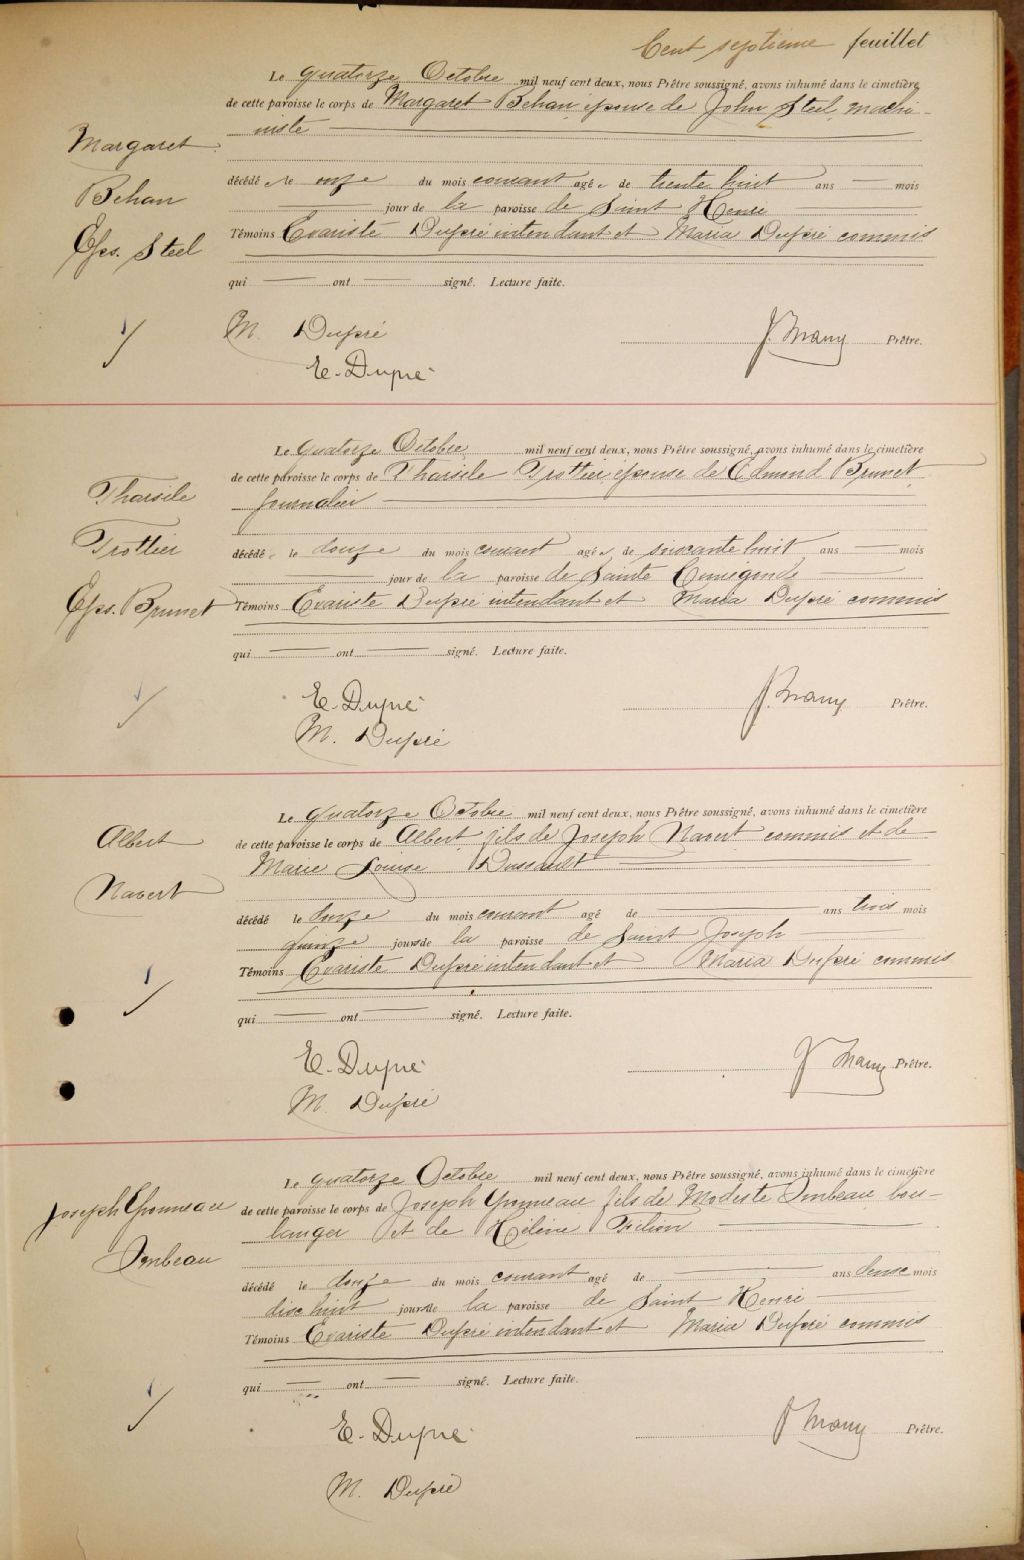 Cent septième feuillet
Le quatorze Octobre mil neuf cent deux, nous Prêtre soussigné, avons inhumé dans le cimetière
de cette paroisse le corps de Margaret Behan épouse de John Steel, machi-
niste
Margaret
Behan
Eps. Steel
décédée le onze du mois courant agée de trente huit ans — mois
jour de la paroisse de Saint Henri
Témoins Evariste Dupré intendant et Maria Dupré commis
qui — ont — signé. Lecture faite.
M. Dupré
E. Dupré
Prêtre.
Le quatorze Octobre mil neuf cent deux, nous Prêtre soussigné, avons inhumé dans le cimetière
de cette paroisse le corps de Tharsile Trottier épouse de Edmond Brunet
journalier
Tharsile
Trottier
Eps. Brunet
décédée le douze du mois courant agée de soixante huit ans — mois
jour de la paroisse de Sainte Cunégonde
Témoins Evariste Dupré intendant et Maria Dupré commis
qui — ont — signé. Lecture faite.
E. Dupré
M. Dupré
Prêtre.
Le quatorze Octobre mil neuf cent deux, nous Prêtre soussigné, avons inhumé dans le cimetière
de cette paroisse le corps de Albert fils de Joseph Navert commis et de
Marie Louise Dussault
Albert
Navert
décédé le douze du mois courant agé de — ans trois mois
quinze jours de la paroisse de Saint Joseph
Témoins Evariste Dupré intendant et Maria Dupré commis
qui — ont — signé. Lecture faite.
E. Dupré
M. Dupré
Prêtre.
Le quatorze Octobre mil neuf cent deux, nous Prêtre soussigné, avons inhumé dans le cimetière
de cette paroisse le corps de Joseph Yvonneau fils de Modeste Imbeau, bou-
langer et de Hélène Filion
Joseph Yvonneau
Imbeau
décédé le douze du mois courant agé de — ans deux mois
dix huit jours de la paroisse de Saint Henri
Témoins Evariste Dupré intendant et Maria Dupré commis
qui — ont — signé. Lecture faite.
E. Dupré
M. Dupré
Prêtre.